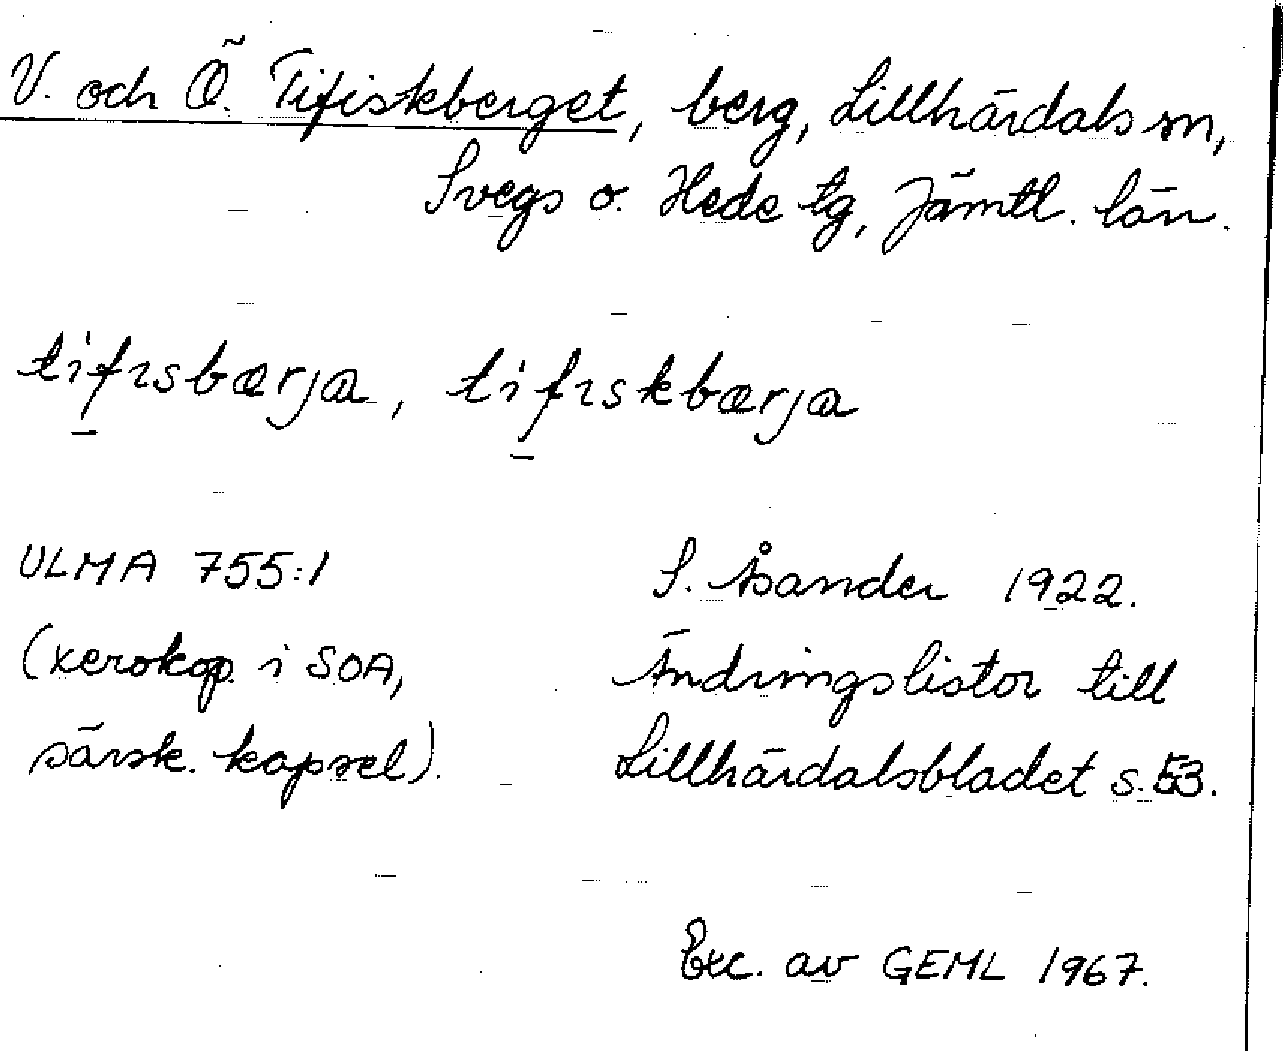 V. och Ö. Tifiskberget, berg, Lillhärdals sn,
Svegs o. Hede tg, Jämtl. län.
tifısbærja, tifıskbærja
ULMA 755:1 S. Åsander 1922.
(xerokop. i SOA, Ändringslistor till
särsk. kapsel). Lillhärdalsbladet s. 53.
Exc. av GEML 1967.